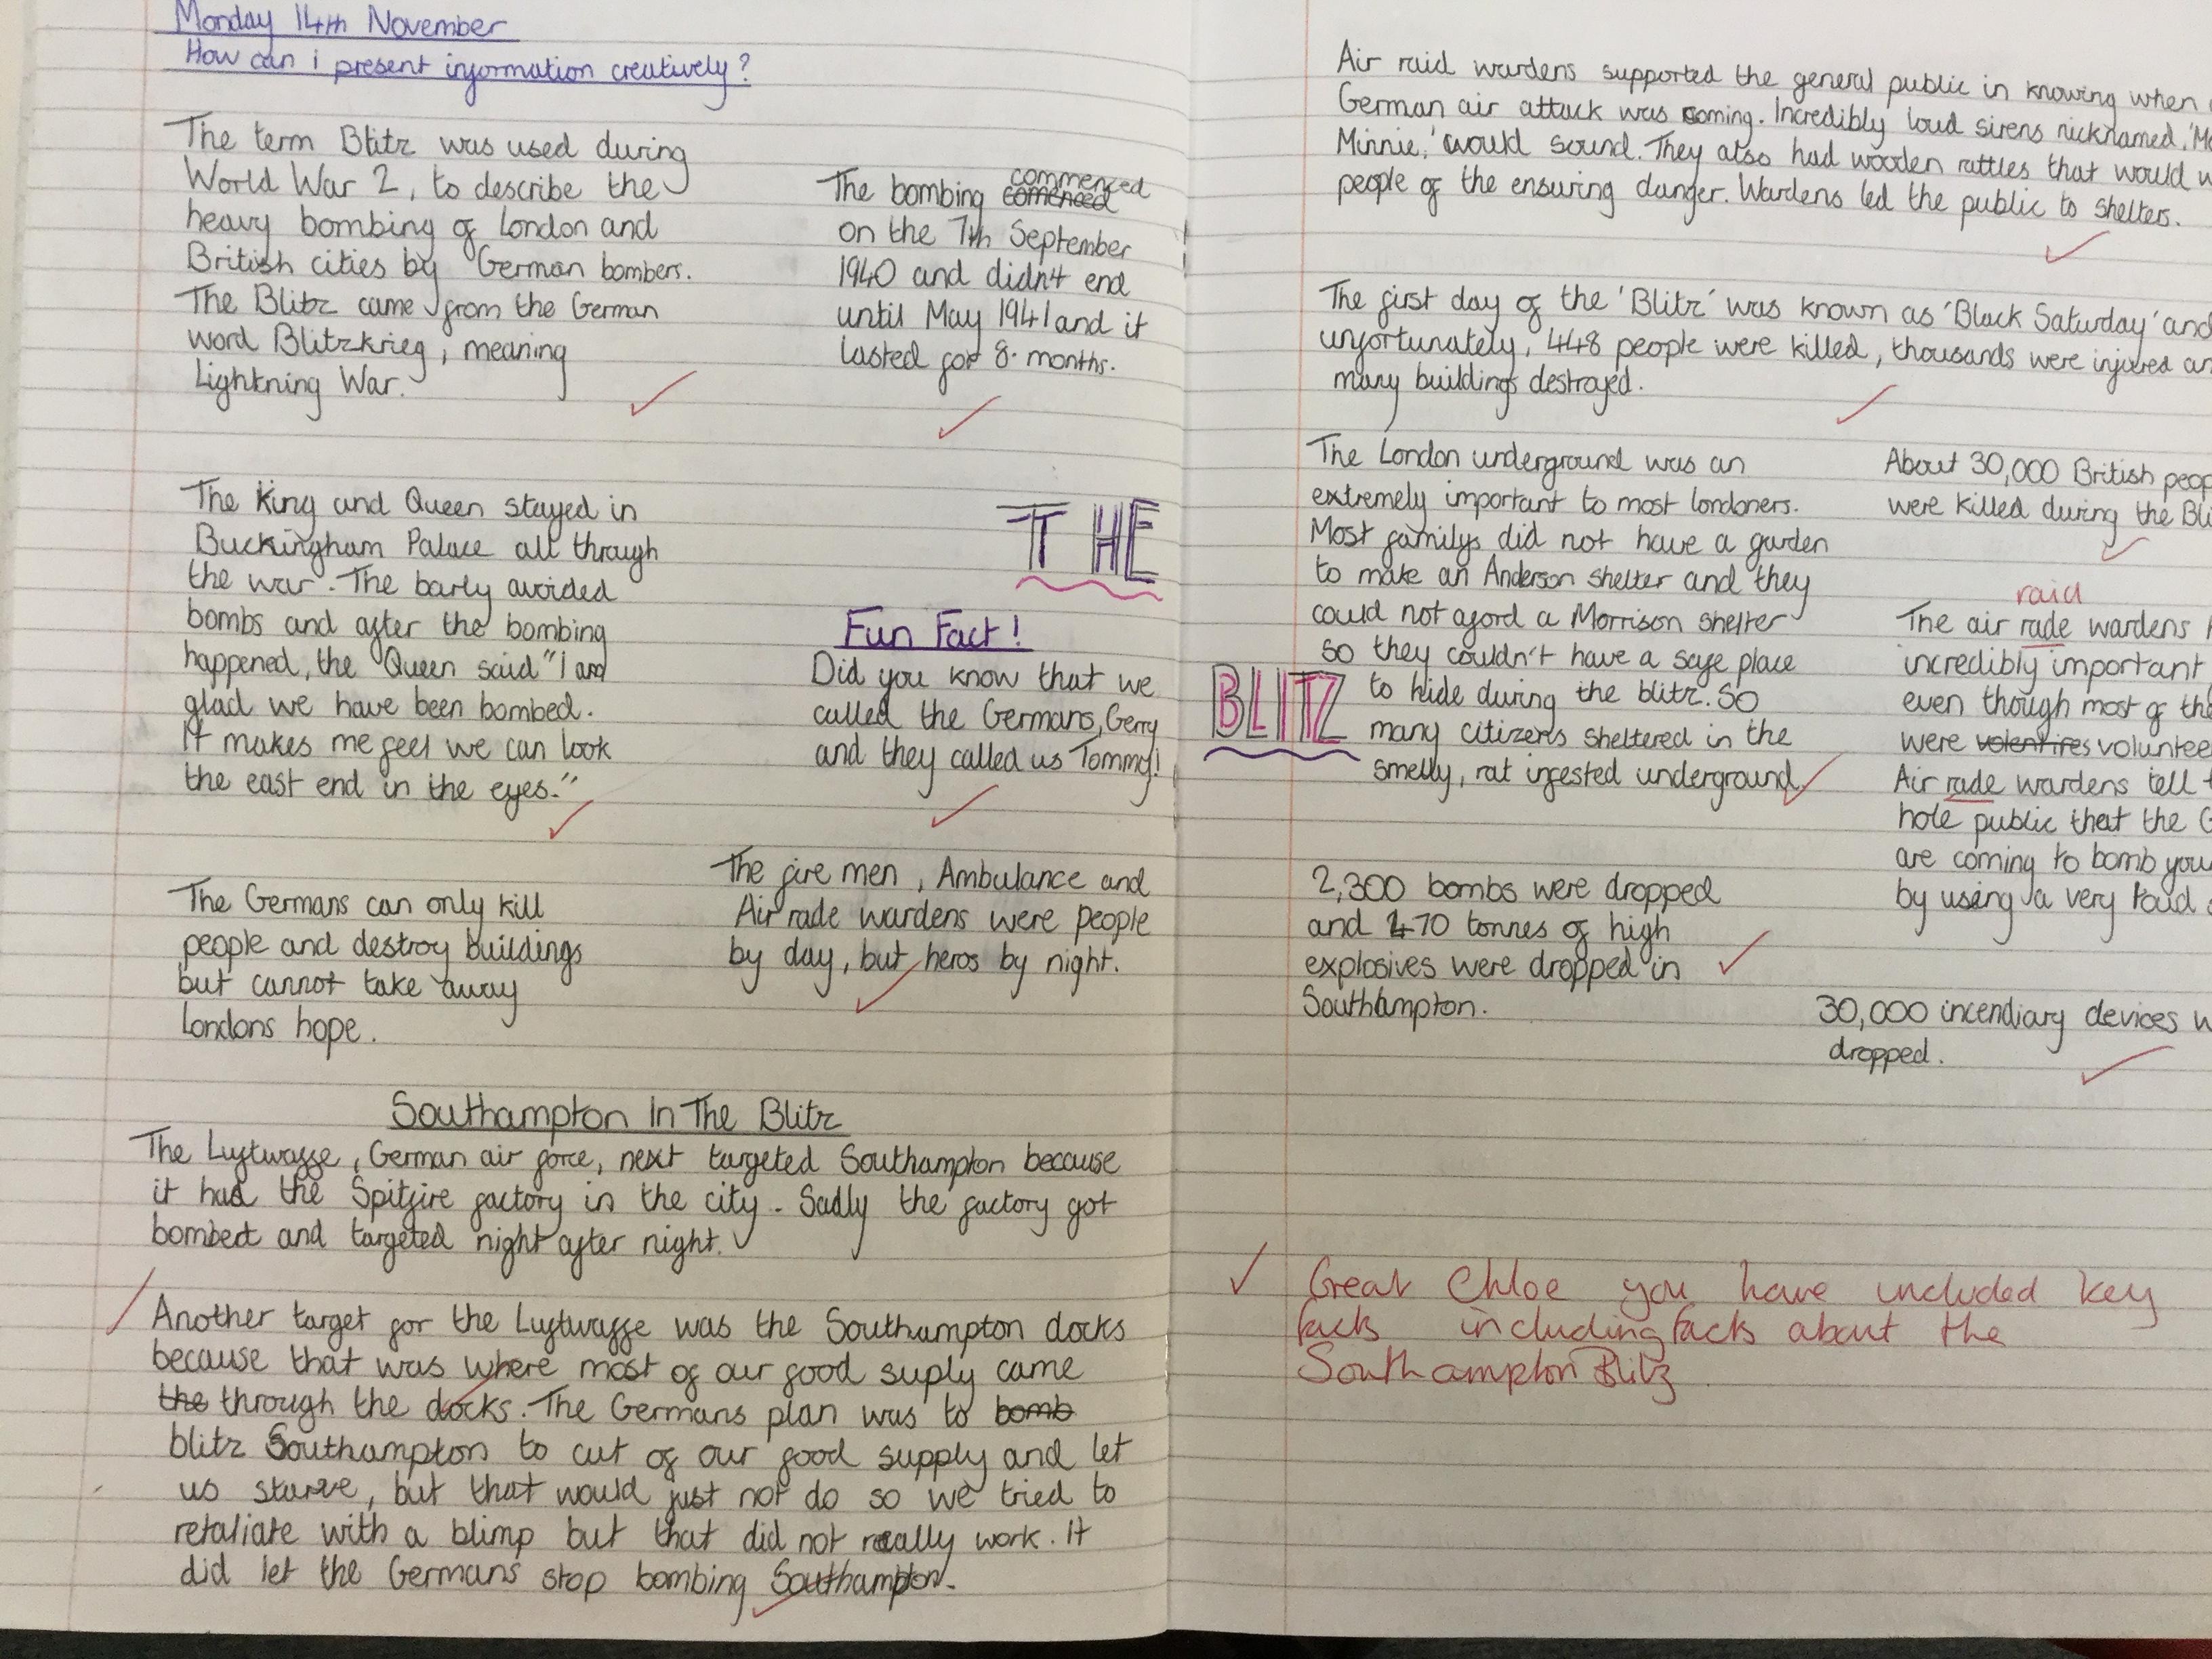 Monday 14th November
How can i present information creatively?
The term Blitz was used during
World War 2, to describe the
heavy bombing of London and
British cities by German bombers.
The Blitz came from the German
word Blitzkrieg, meaning
Lightning War.
The bombing comenced commenced
on the 7th September
1940 and didn't end
until May 1941 and it
lasted for 8 months.
The King and Queen stayed in
Buckingham Palace all through
the war. The barly avoided
bombs and after the bombing
happened, the Queen said "I am
glad we have been bombed.
It makes me feel we can look
the east end in the eyes."
THE
Fun Fact!
Did you know that we
called the Germans, Gerry
and they called us Tommy!
The Germans can only kill
people and destroy buildings
but cannot take away
Londons hope.
The fire men, Ambulance and
Air rade wardens were people
by day, but heros by night.
Southampton In The Blitz
The Luftwaffe, German air force, next targeted Southampton because
it had the Spitfire factory in the city. Sadly the factory got
bombed and targeted night after night.
Another target for the Luftwaffe was the Southampton docks
because that was where most of our food suply came
the through the docks. The Germans plan was to bomb
blitz Southampton to cut of our food supply and let
us starve, but that would just not do so we tried to
retaliate with a blimp but that did not really work. It
did let the Germans stop bombing Southampton.
Air raid wardens supported the general public in knowing when
German air attack was coming. Incredibly loud sirens nicknamed, '
Minnie,' would sound. They also had wooden rattles that would
people of the ensuring danger. Wardens led the public to shelters.
The first day of the 'Blitz' was known as 'Black Saturday' and
unfortunately, 448 people were killed, thousands were injured
many buildings destroyed.
The London underground was an
extremely important to most londoners.
Most familys did not have a garden
to make an Anderson shelter and they
could not aford a Morrison shelter
so they couldn't have a safe place
BLITZ
to hide during the blitz. So
many citizens sheltered in the
smelly, rat infested underground.
About 30,000 British
were killed during the
raid
The air rade wardens
incredibly important
even though most of
were volentires
Air rade wardens tell
hole public that the
are coming to bomb
by using a very loud
2,300 bombs were dropped
and 470 tonnes of high
explosives were dropped in
Southampton.
30,000 incendiary devices
dropped.
Great Chloe you have included key
facts including facts about the
Southampton Blitz